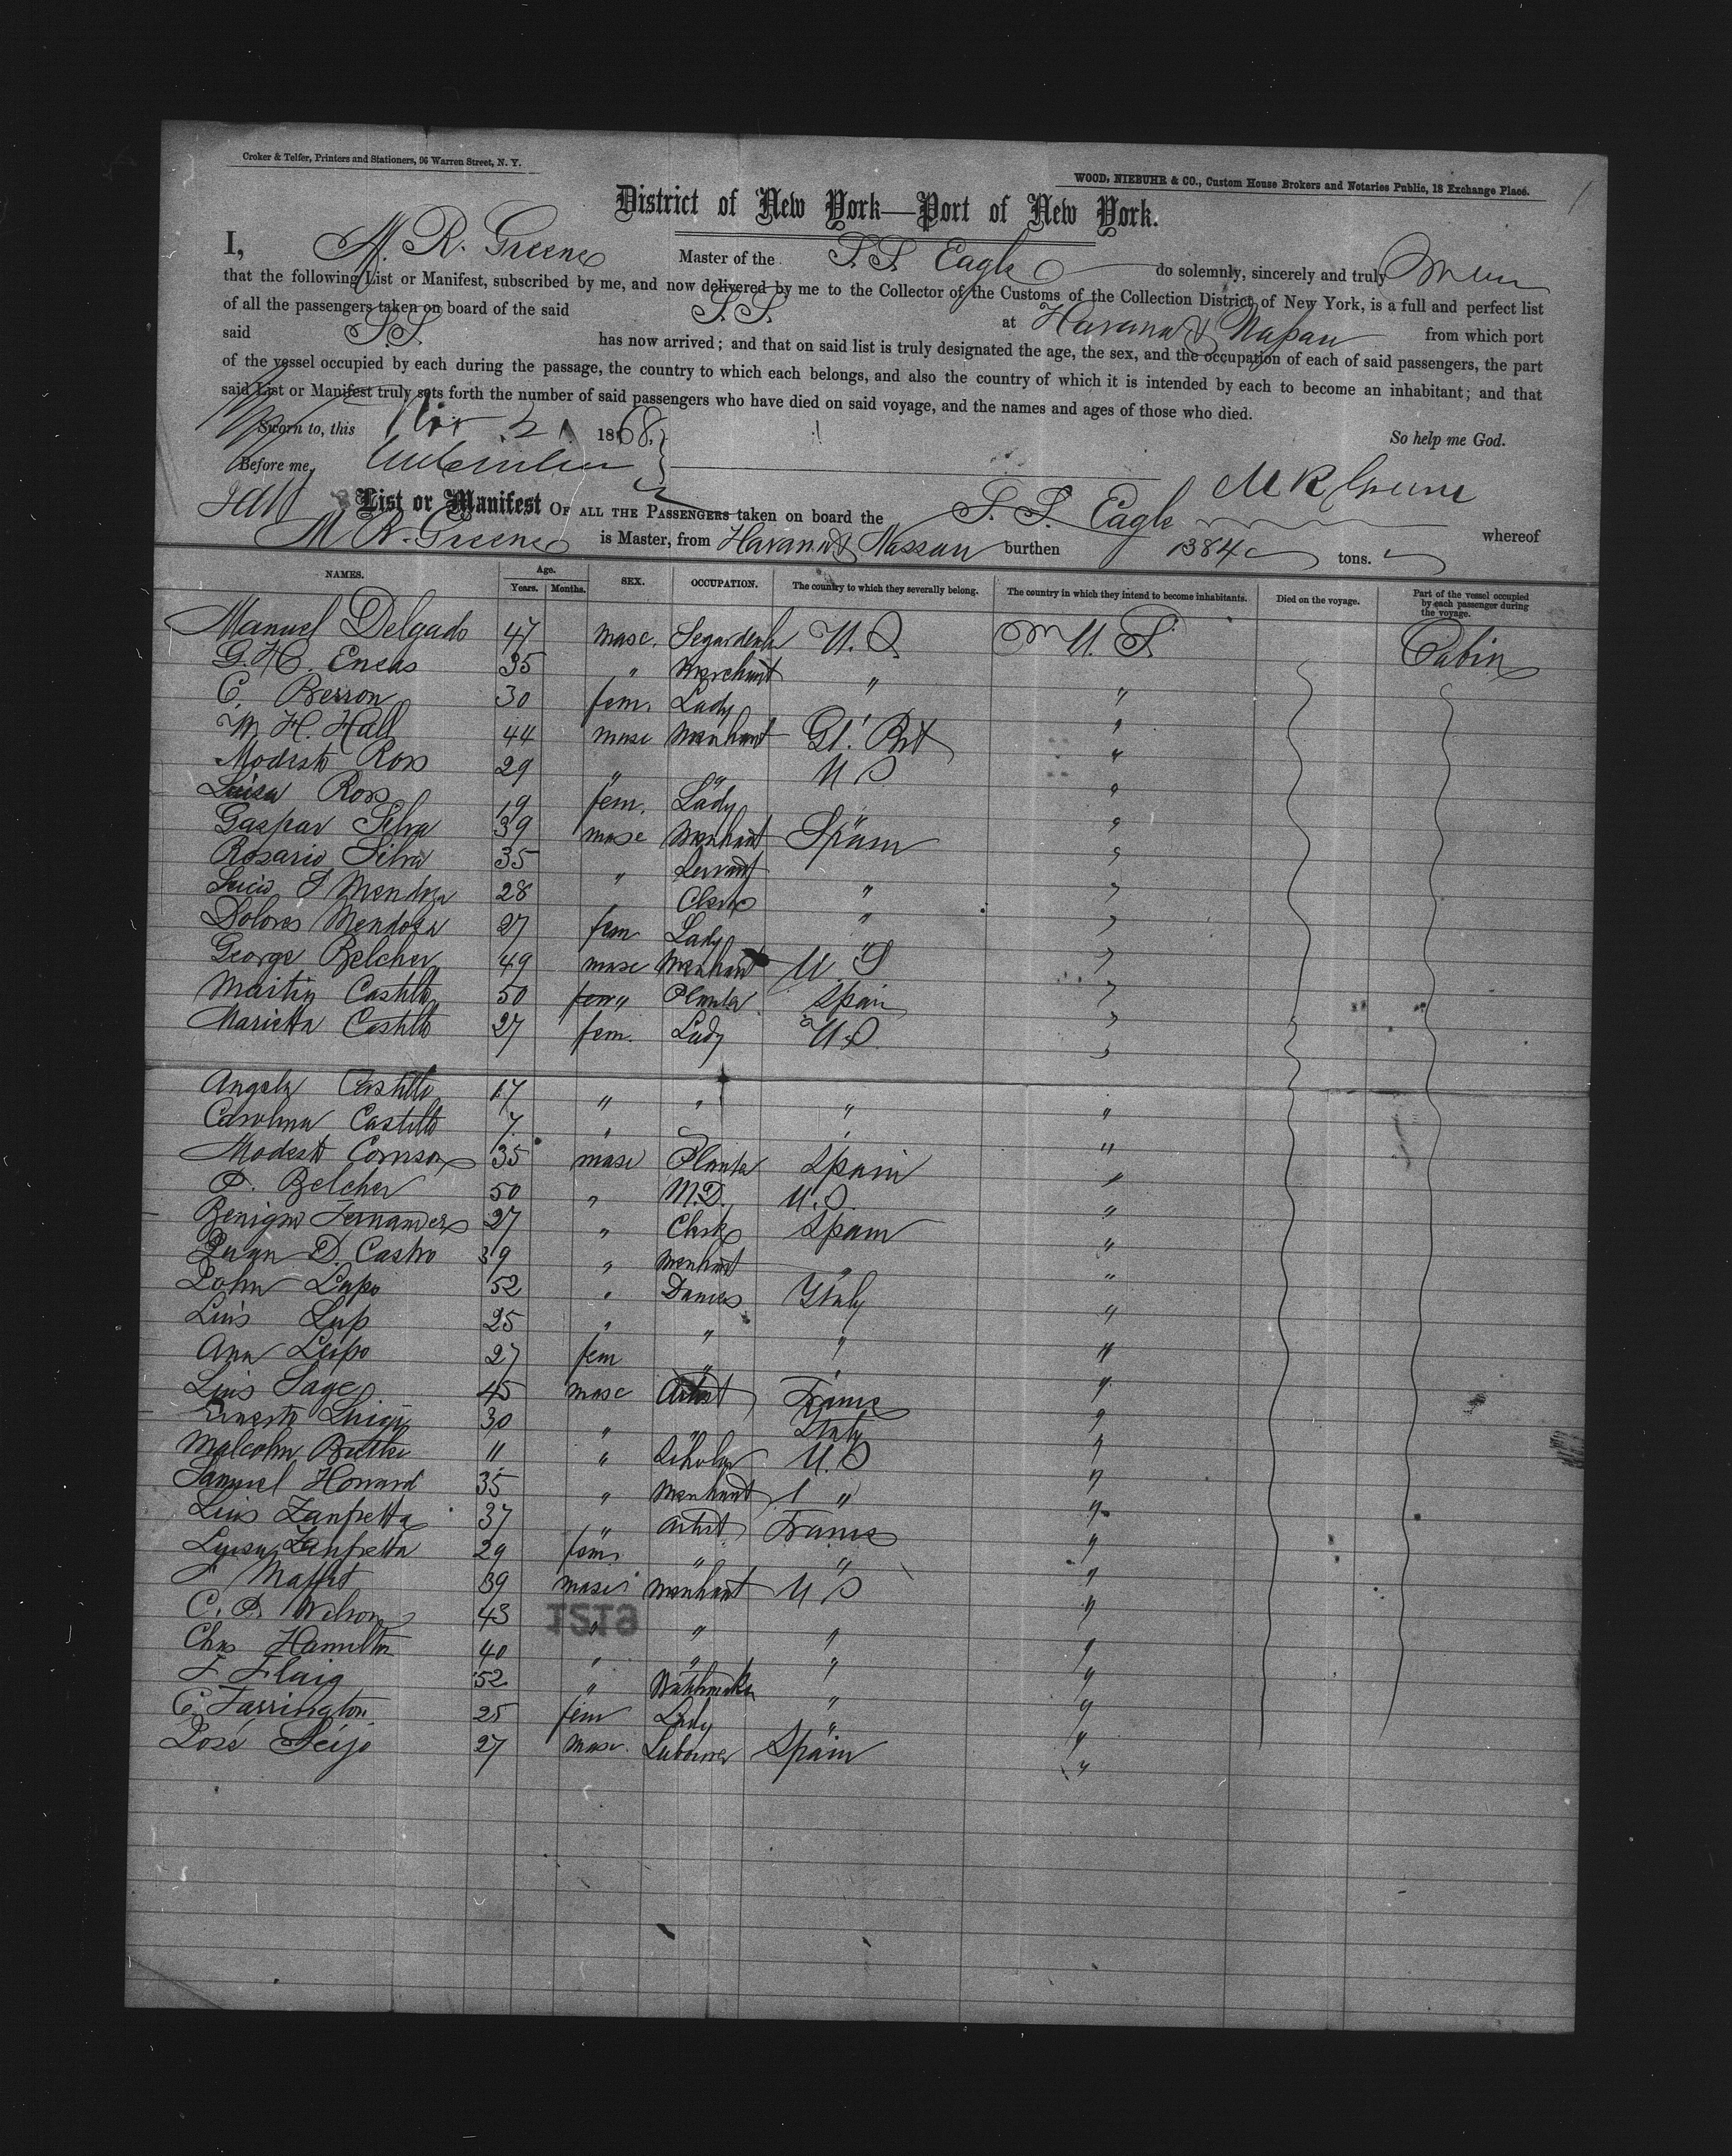 Croker & Telfer, Printers and Stationers, 96 Warren Street, N. Y.
WOOD, NIEBUHR & CO., Custom House Brokers and Notaries Public, 18 Exchange Place.
1
District of New York—Port of New York.
I, M. R. Greene Master of the S.S. Eagle do solemnly, sincerely and truly
that the following List or Manifest, subscribed by me, and now delivered by me to the Collector of the Customs of the Collection District of New York, is a full and perfect list
of all the passengers taken on board of the said S.S. at Havana & Nassau from which port
said S.S. has now arrived; and that on said list is truly designated the age, the sex, and the occupation of each of said passengers, the part
of the vessel occupied by each during the passage, the country to which each belongs, and also the country of which it is intended by each to become an inhabitant; and that
said List or Manifest truly sets forth the number of said passengers who have died on said voyage, and the names and ages of those who died.
Sworn to, this Nov 21 1868. So help me God.
Before me,
M R Greene
List or Manifest OF ALL THE PASSENGERS taken on board the S. S. Eagle whereof
M R. Greene is Master, from Havana & Nassau burthen 1384 tons.
NAMES. Age. Years. Months. SEX. OCCUPATION. The country to which they severally belong. The country in which they intend to become inhabitants. Died on the voyage. Part of the vessel occupied by each passenger during the voyage.
Manuel Delgado 47 masc. U.S. U.S. Cabin
G. H. Eneas 35 " Merchant " "
C. Berron 30 fem. Lady "
W. H. Hall 44 masc Merchant Gt. Brt "
Modesto Ross 29 " " U S "
Luisa Ross 19 fem. Lady " "
Gaspar Silva 39 masc Merchant Spain "
Rosario Silva 35 " Servant "
Lucio S Mendoza 28 Clerk " "
Dolores Mendoza 27 fem Lady " "
George Belcher 49 masc Merchant U S "
Martin Castillo 50 " Planter Spain "
Marietta Castillo 27 fem. Lady U.S. "
Angela Castillo 17 " " " "
Carolina Castillo 7 " " "
Modesto 35 masc Planter Spain "
P. Belcher 50 " M.D. U.S. "
Benigno Fernandez 27 " Clerk Spain "
Juan D. Castro 39 " Merchant " "
John Lupo 52 " Dancer Italy "
Luis Lup 25 " " " "
Ann Lupo 27 fem " " "
Luis Sage 45 masc Artist France "
Ernesto Luigi 30 " " Italy "
Malcolm Butler 11 " Scholar U.S "
Samuel Howard 35 " Merchant " "
Luis Zanfretta 37 " artist France "
Luisa Zanfretta 29 fem. " " "
Maffit 39 masc. merchant U S "
C. P. Wilson 43 " " " "
Chas Hamilton 40 " " " "
F Flaig 52 " Watchmaker " "
C. Farrington 25 fem Lady " "
José Seijo 27 masc. Labourer Spain "